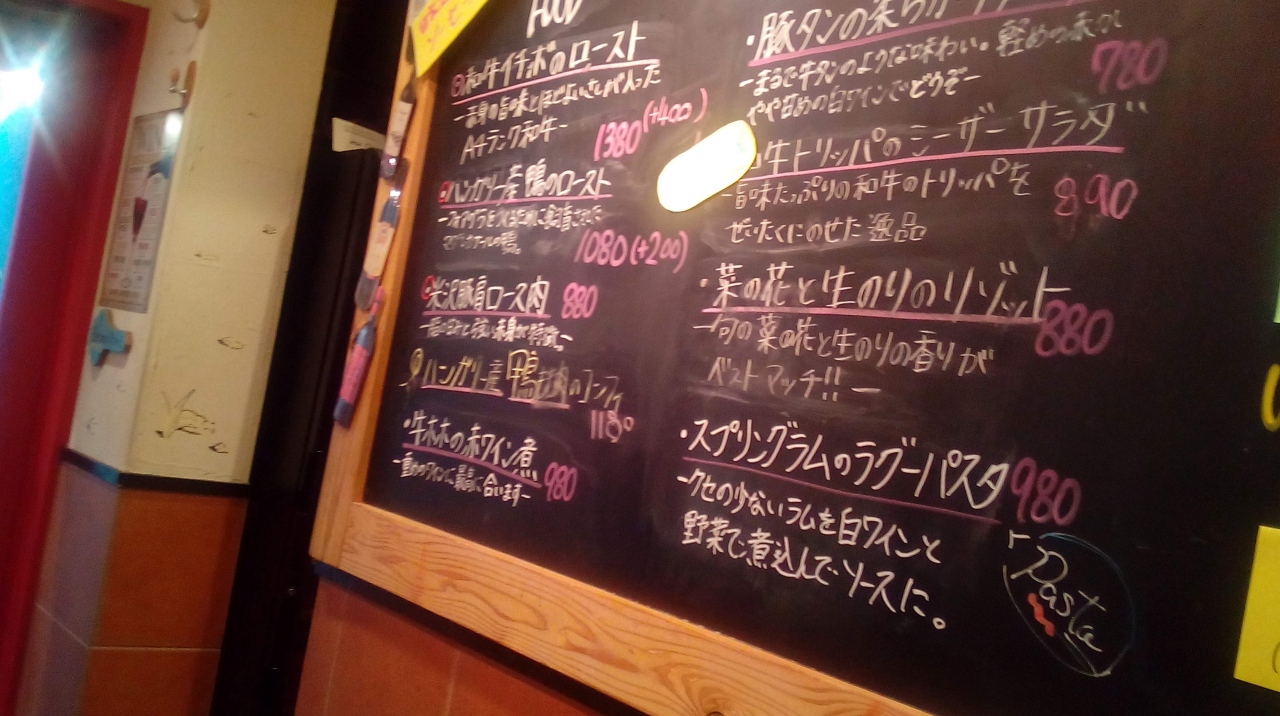 FOOD
和牛イチボのロースト
ー赤身の旨味とほどよいさしが入った
A4ランク和牛ー
1380(+400)
ハンガリー産鴨のロースト
1080(+200)
米沢豚肩ロース肉 880
ハンガリー産鴨のコンフィ
1180
・牛ホホの赤ワイン煮
ー重めのワインに最高に合いますー 980
・豚タンの柔らか
ーまるで牛タンのような味わい。軽めの赤か
やや甘めの白ワインでどうぞー
780
牛トリッパのシーザーサラダ
ー旨味たっぷりの和牛のトリッパを
ぜいたくにのせた逸品
890
・菜の花と生のりのリゾット
880
ー旬の菜の花と生のりの香りが
ベストマッチ!!ー
・スプリングラムのラグーパスタ 980
ークセの少ないラムを白ワインと
野菜で煮込んでソースに。
Pasta